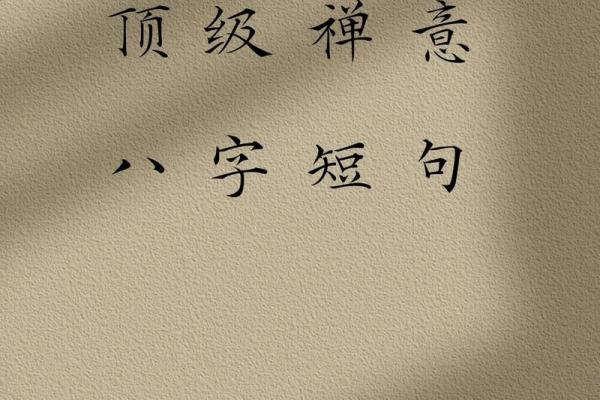 顶级禅意
八字短句